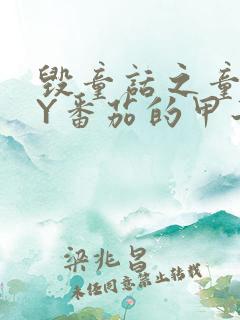 毁童话之童
Y番茄的甲
梁兆昌
未经同意禁止转载